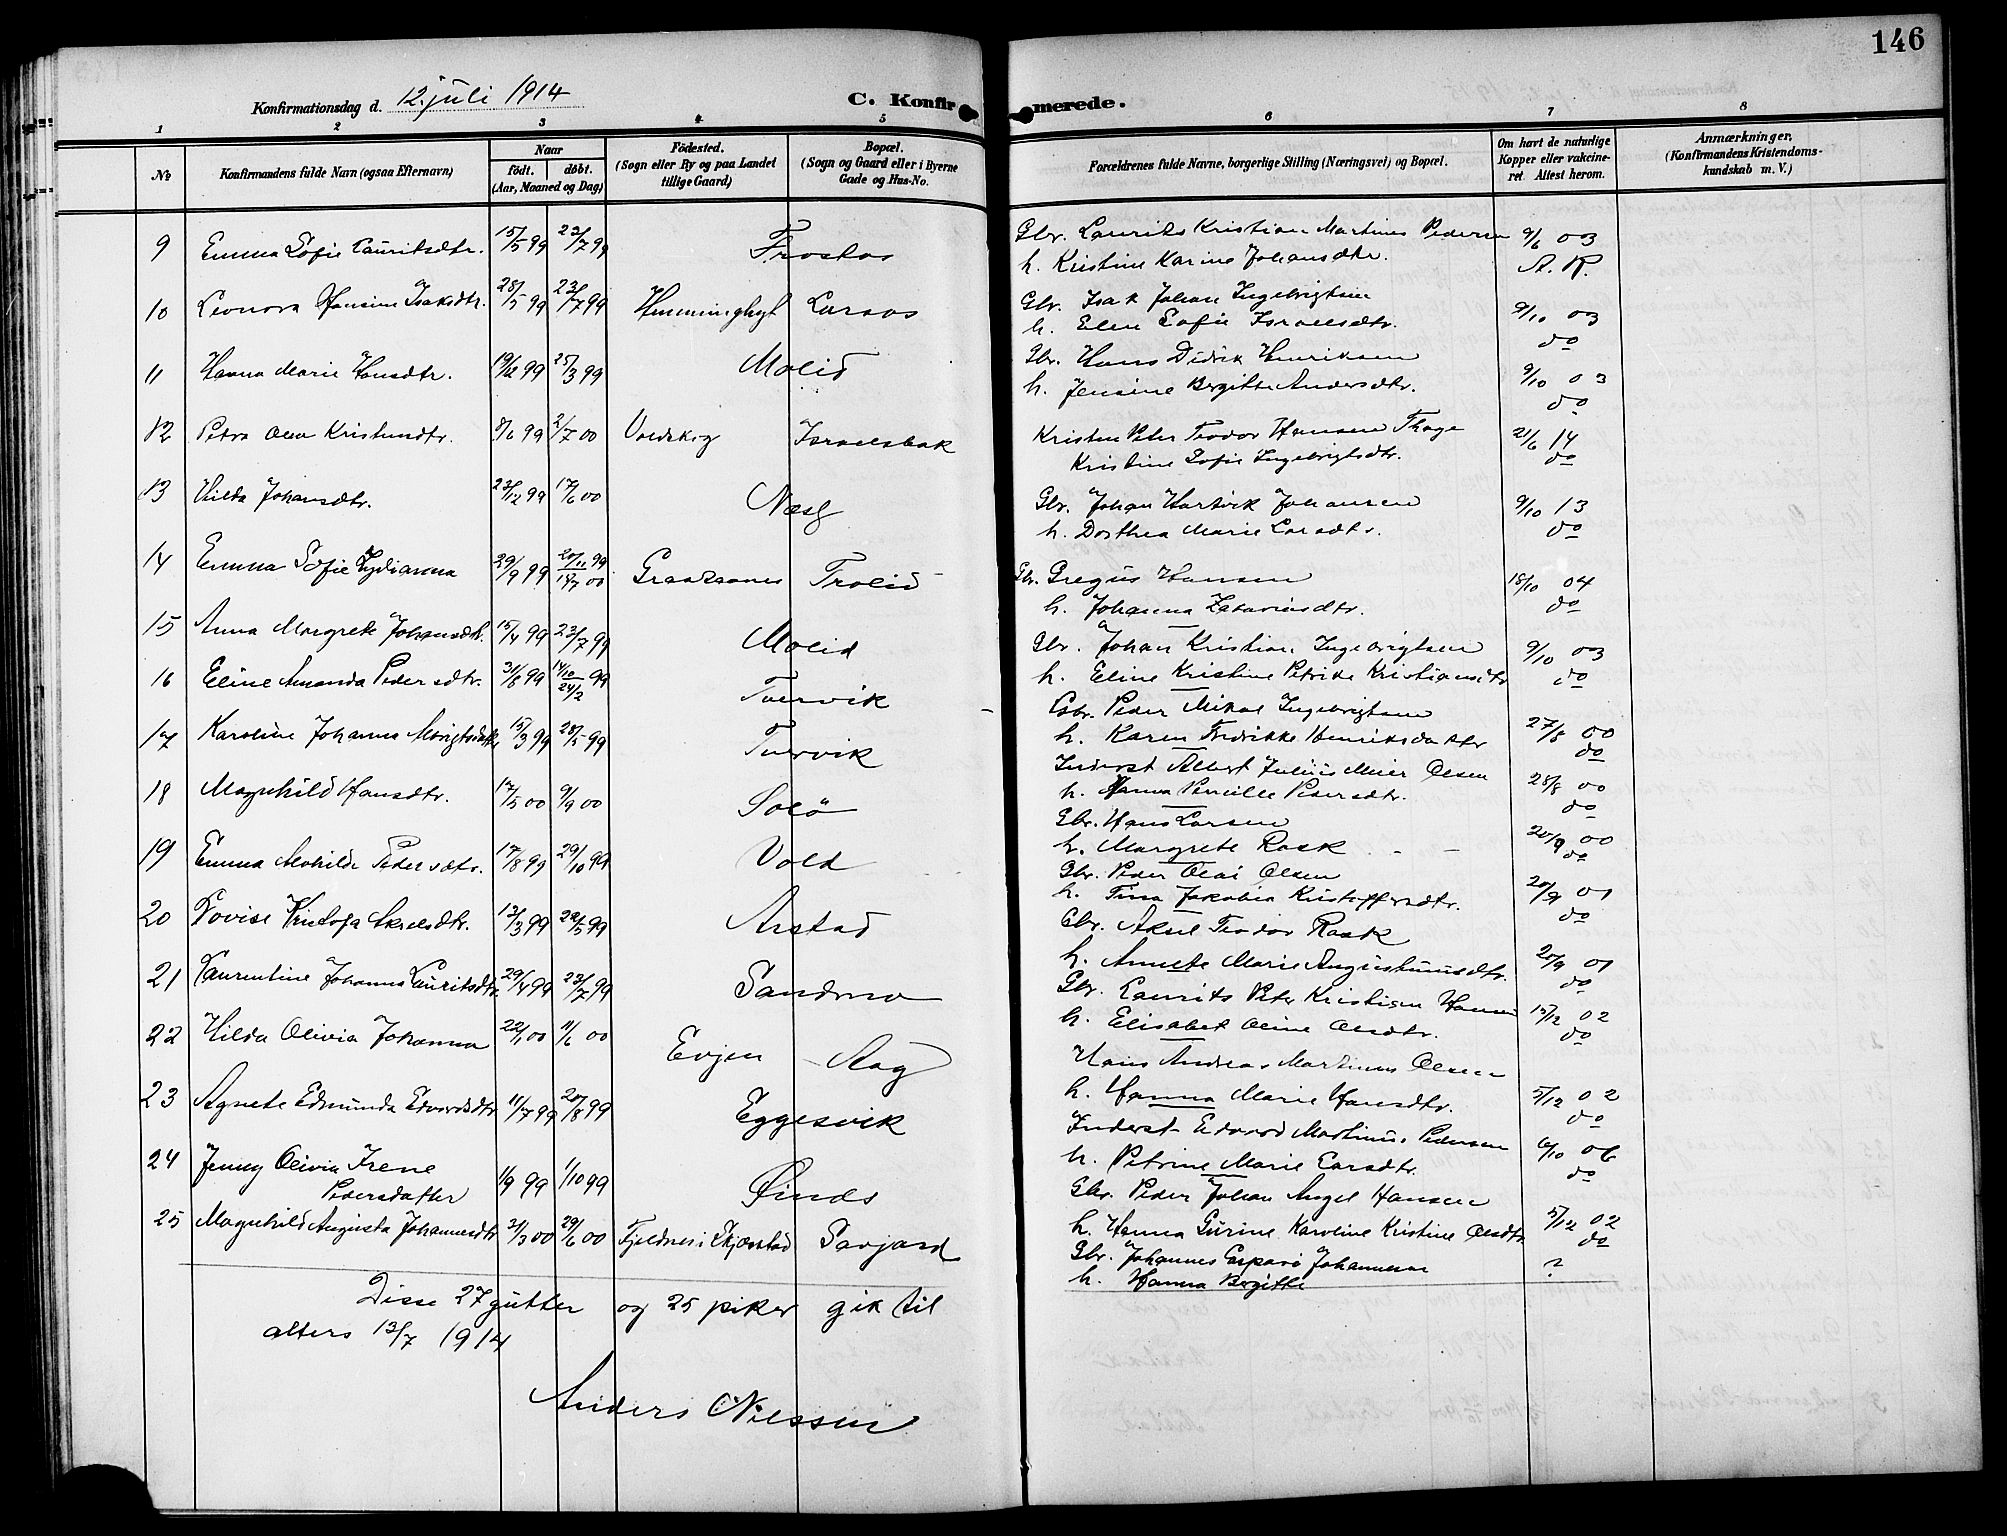 146
Konfirmationsdag d. 12. juli 1914
C. Konfirmerede.
1 2 3 4 5 6 7 8
No
Konfirmandens fulde Navn (ogsaa Efternavn)
Naar
födt. döbt.
(Aar, Maaned og Dag)
Födested.
(Sogn eller By og paa Landet
tillige Gaard)
Bopæl.
(Sogn og Gaard eller i Byerne
Gade og Hus-No.
Forældrenes fulde Navne, borgerlige Stilling (Næringsvei) og Bopæl.
Om havt de naturlige
Kopper eller vakcine-
ret. Attest herom.
Anmærkninger.
(Konfirmandens Kristendoms-
kundskab m. V.)
9 Emma Sofie Lauritsdtr. 15/5 99 23/7 99 Frostos
Gbr. Laurits Kristian Martinus Pedersen 9/6 03
h. Kristine Karine Johansdtr. A. R.
10 Leonora Hansine Isaksdtr. 28/5 99 23/7 99 Larsos
Gbr. Isak Johan Ingebrigtsen 9/10 03
h. Elen Sofie Israelsdtr. do
11 Hanna Marie Hansdtr. 25/3 99 Molid
Gbr. Hans Didrik Henriksen 9/10 03
h. Jensine Bergitte Andersdtr. do
12 Petra Olea 99 2/7 00 Israelsbak
Kristen Peter Teodor Hansen 21/6 14
Kristine Sofie Ingebrigtsdtr. do
13 Hilda Johansdtr. 23/12 99 17/6 00
Gbr. Johan Hartvik Johansen 9/10 13
h. Dorthea Marie Larsdtr. do
14 Emma Sofie Lydianna 29/9 99 Trolid
Gbr. Gregus Hansen 18/10 04
h. Johanna do
15 Anna Margrete Johansdtr. 15/4 99 23/7 99 Molid
Gbr. Johan Kristian Ingebrigtsen 9/10 03
h. Eline Kristine Petrike Kristiansdtr do
16 Eline Amanda Pedersdtr. 31/8 99 Tverrvik
Gbr. Peder Mikal Ingebrigtsen 27/8 00
h. Karen Fredrikke Henriksdatter do
17 Karoline Johanna 15/3 99 28/5 99 Tverrvik
Inderst Albert Julius Meier Olsen 28/8 00
h. Hanna Pernille Pedersdtr. do
18 Magnhild Hansdtr. 17/5 00 9/9 00 Solö
Gbr. Hans Larsen 20/9 00
h. Margrete Rask do
19 Emma Pedersdtr. 17/8 99 29/10 99 Vold
Gbr. Peder Olai Olsen 20/9 01
h. Tina Jakobia Kristoffersdtr. do
20 Lovise Akselsdtr. 13/3 99 22/5 99 Arstad
Gbr. Aksel Teodor Rask 20/9 01
h. Annete Marie Augustinusdtr. do
21 Laurentine Johanna Lauritsdtr. 29/4 99 23/7 99 Sandmo
Gbr. Laurits Peter Kristian Hansen 02
h. Elisabet Oline Olsdtr. do
22 Hilda Olivia Johanna 22/1 00 11/6 00 Evjen Aag
Hans Andreas Martinus Olsen 5/12 02
h. Hanna Marie Hansdtr. do
23 Agnete Edmunda Edvardsdtr 11/7 99 20/8 99 Eggesvik
Inderst Edvard Martinus Pedersen 06
h. Petrine Marie Larsdtr. do
24 Jenny Olivia Irene
Pedersdatter 1/9 99 1/10 99 Øinds
Gbr. Peder Johan Angel Hansen 5/12 02
h. Hanna Gurine Karoline Kristine Olsdtr do
25 Magnhild Augusta Johannesdtr 00 29/6 00 Fjeldnes i Skjærstad
Gbr. Johannes Johannesen ?
h. Hanna Bergitte
Disse 27 gutter og 25 piker gik til
alters 13/7 1914
Anders Nilssen